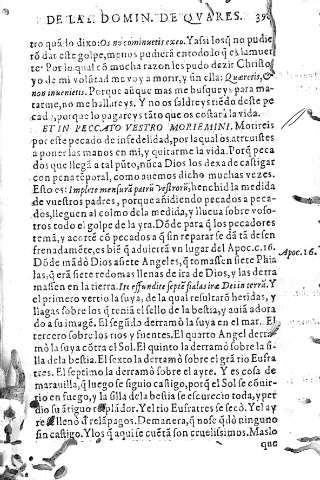 DE LA I. DOMIN. DE QUARES. 39
tro quãdo dixo: Os no cominuetis ex eo. Y assi los q̃ no pudie
rõ dar este golpe, menos pudierã entodo lo q̃ es la muer
te. Por lo qual cõ mucha razon les pudo dezir Christo
yo de mi volũtad me voy a morir, y sin ella: Quæretis, &
non inuenietis. Porque aũque mas me busqueys para ma-
tarme, no me hallareys. Y no os saldreys riẽdo deste pe
cado, porque lo pagareys tãto que os costarà la vida.
ET IN PECCATO VESTRO MORIEMINI. Morireis
por este pecado de infedelidad, por la qual os atreuistes
a poner las manos en mi, y quitarme la vida. Porq̃ peca
dos que llegã a tal pũto, nũca Dios los dexa de castigar
con pena tẽporal, como auemos dicho muchas vezes.
Esto es: Implete mensurã patrũ vestrorũ, henchid la medida
de vuestros padres, porque añidiendo pecados a peca-
dos, lleguen al colmo de la medida, y llueua sobre voso-
tros todo el golpe de la yra. Dõde para q̃ los pecadores
temã, y acortẽ cõ pecados q̃ sin reparar se dã tã desen
frenadamẽte, es biẽ q̃ aduiertã vn lugar del Apoc. c. 16.
Apoc. 16.
Dõde mãdò Dios a siete Angeles, q̃ tomassen siete Phia
las, q̃ erã siete redomas llenas de ira de Dios, y las derra
massen en la tierra. Ite effundite septẽ fialas iræ Dei in terrã. Y
el primero vertio la suya, de la qual resultarõ heridas, y
llagas sobre los q̃ teniã el sello de la bestia, y auiã adora
do a su imagẽ. El segũdo derramò la suya en el mar. El
tercero sobre los rios y fuentes. El quarto Angel derra
mò la suya cõtra el Sol. El quinto la derramò sobre la si
lla de la bestia. El sexto la derramò sobre el grã rio Eufra
tres. El septimo la derramò sobre el ayre. Y es cosa de
marauilla, q̃ luego se siguio castigo, porq̃ el Sol se cõuir-
tio en fuego, y la silla dela bestia se escurecio toda, y per
dio su ãtiguo resplãdor. Y el rio Eufratres se secò. Y el ay
re se llenò d̃ relãpagos. De manera, q̃ no se q̃dò ninguno
sin castigo. Y los q̃ aqui se cuẽtã son cruelissimos. Mas lo
que